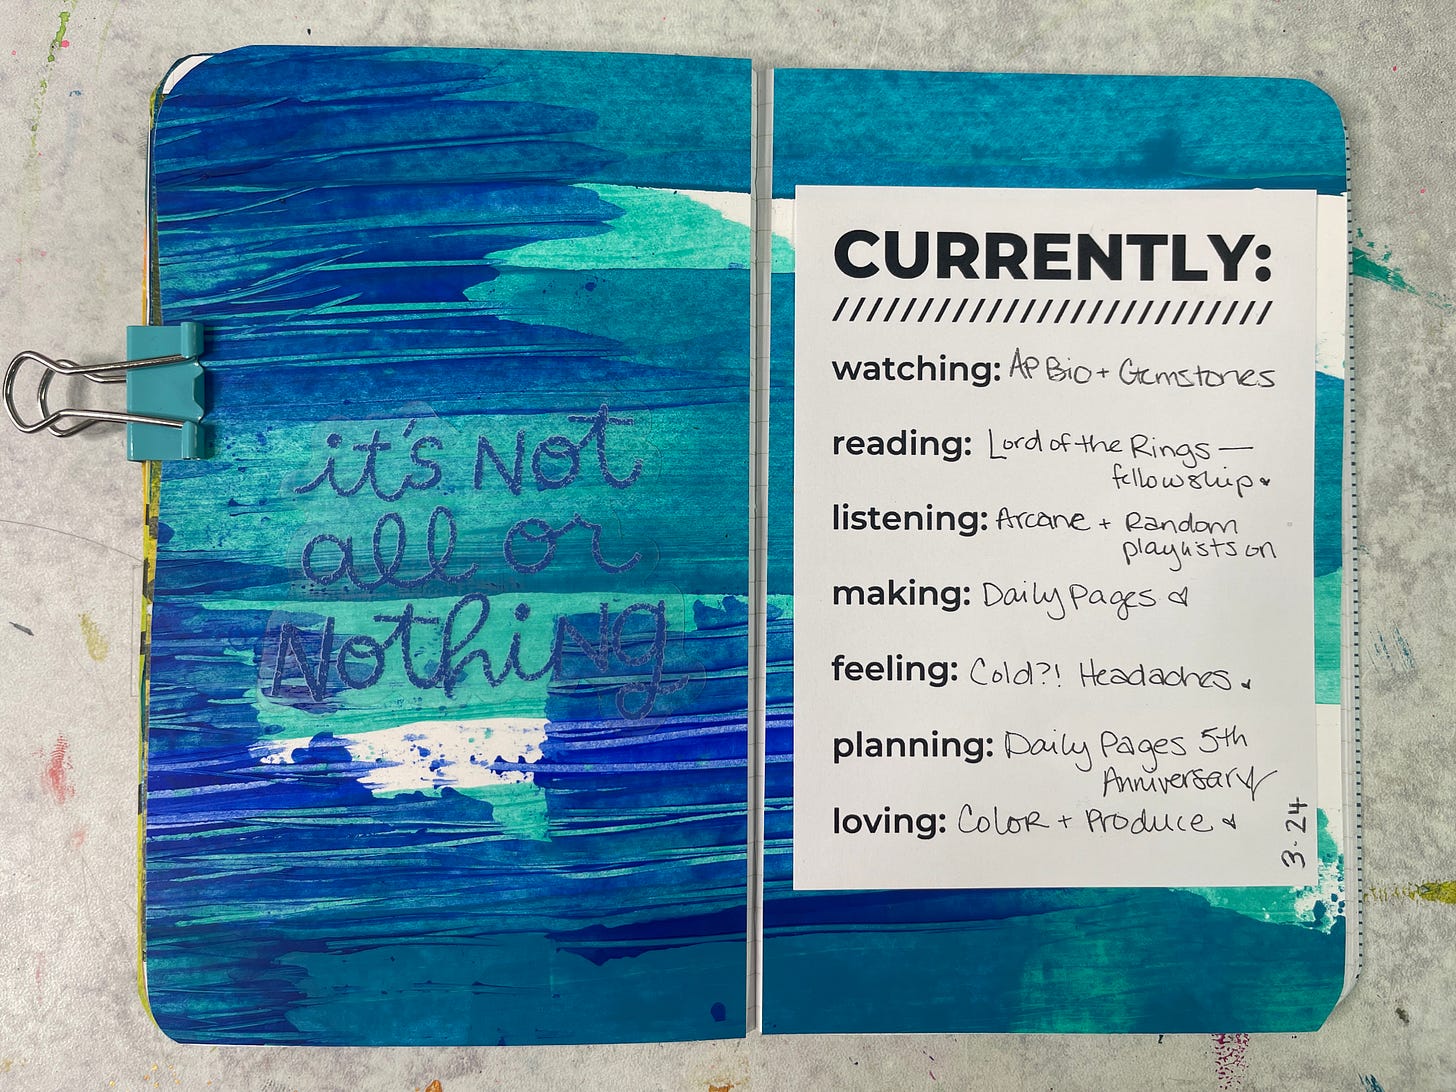 it's Not
all or
Nothing
CURRENTLY:
////////////////////////////////
watching: AP Bio + Gemstones
reading: Lord of the Rings —
fellowship
listening: Arcane + Random
playlists on
making: Daily Pages
feeling: Cold?! Headaches
planning: Daily Pages 5th
Anniversary
loving: Color + Produce
3-24